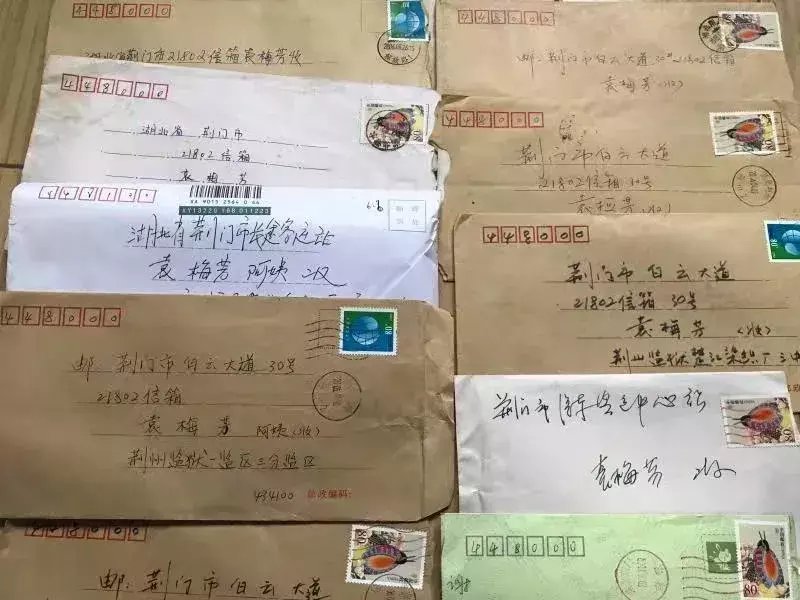 448000
湖北省荆门市21802信箱袁梅芳收
448000
湖北省 荆门市
21802信箱
袁梅芳
448000
XA 9013 2564 0 44
XY13320 168 011223
湖北省荆门市长途客运站
袁梅芳 阿姨 收
448000
80
邮:荆门市白云大道30号
21802信箱
袁梅芳 阿姨(收)
荆州监狱一监区三分监区
434100 邮政编码:
448000
80
邮:荆门市白云大道
448000
邮:荆门市白云大道30号21802信箱
袁梅芳(收)
448000
80
荆门市白云大道
21802信箱30号
袁梅芳(收)
448000
80
荆门市白云大道
21802信箱30号
袁梅芳(收)
荆门市
客运中心站
袁梅芳 收
448000
80